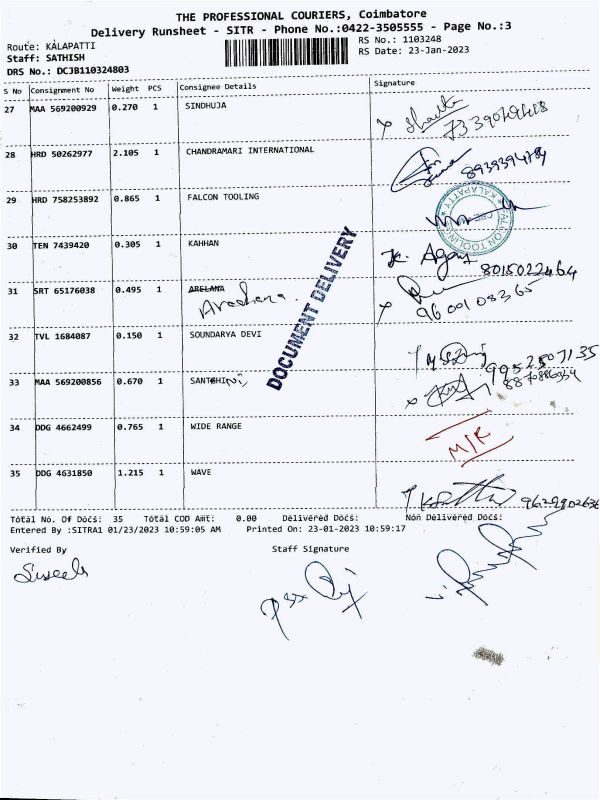 THE PROFESSIONAL COURIERS, Coimbatore
Delivery Runsheet - SITR - Phone No.:0422-3505555 - Page No.:3
Route: KALAPATTI
RS No.: 1103248
Staff: SATHISH
RS Date: 23-Jan-2023
DRS No.: DCJB110324803
S No Consignment No Weight PCS Consignee Details Signature
27 MAA 569200929 0.270 1 SINDHUJA
28 HRD 50262977 2.105 1 CHANDRAMARI INTERNATIONAL
29 HRD 758253892 0.865 1 FALCON TOOLING
FALCON TOOLING KALAPATTY
30 TEN 7439420 0.305 1 KAHHAN
8015022464
31 SRT 65176038 0.495 1 ARELANA
Aradhana
9600108365
DOCUMENT DELIVERY
32 TVL 1684087 0.150 1 SOUNDARYA DEVI
9952507135
33 MAA 569200856 0.670 1
34 DDG 4662499 0.765 1 WIDE RANGE
M/R
35 DDG 4631850 1.215 1 WAVE
Total No. Of Docs: 35 Total COD Amt: 0.00 Delivered Docs: Non Delivered Docs:
Entered By :SITRA1 01/23/2023 10:59:05 AM Printed On: 23-01-2023 10:59:17
Verified By Staff Signature